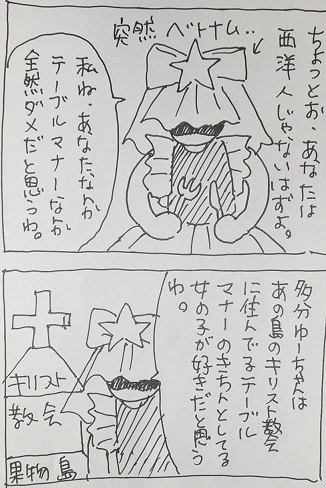 ちょっとお、あなたは
西洋人じゃないはずよ。
突然ベトナム..
私ね、あなたなんか
テーブルマナーなんか
全然ダメだと思うわ。
多分ゆーちゃんは
あの島のキリスト教会
に住んでるテーブル
マナーのきちんとしてる
女の子が好きだと思う
わ。
キリスト
教会
果物島